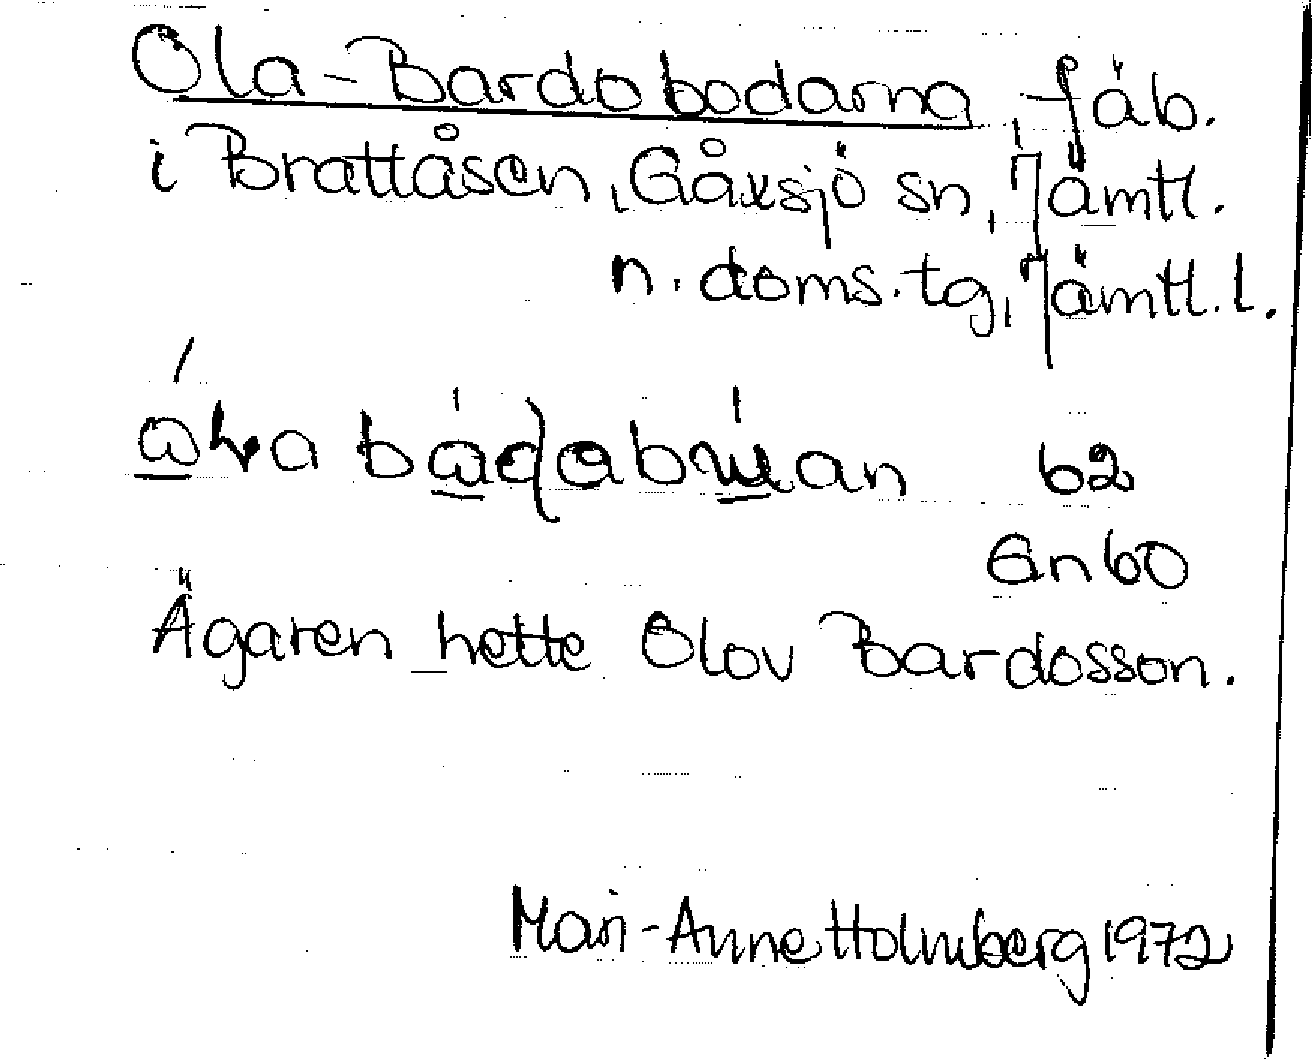 Ola-Bardobodarna, fäb.
i Brattåsen, Gåxsjö sn, Jämtl.
n. doms. tg, Jämtl. l.
62
Gn 60
Ägaren hette Olov Bardosson.
Mari-Anne Holmberg 1972